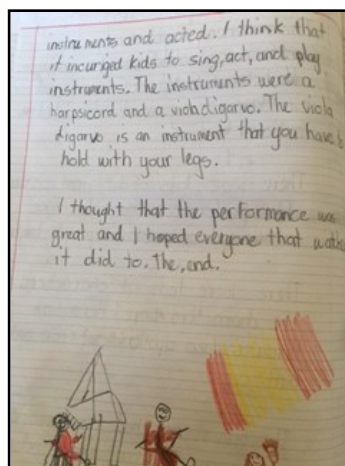 instruments and acted. I think that
it incuriged kids to sing, act, and play
instruments. The instruments were a
harpsicord and a violadigarvo. The viola
digarvo is an instrument that you have
hold with your legs.
I thought that the performance was
great and I hoped everyone that
it did to. The, end.